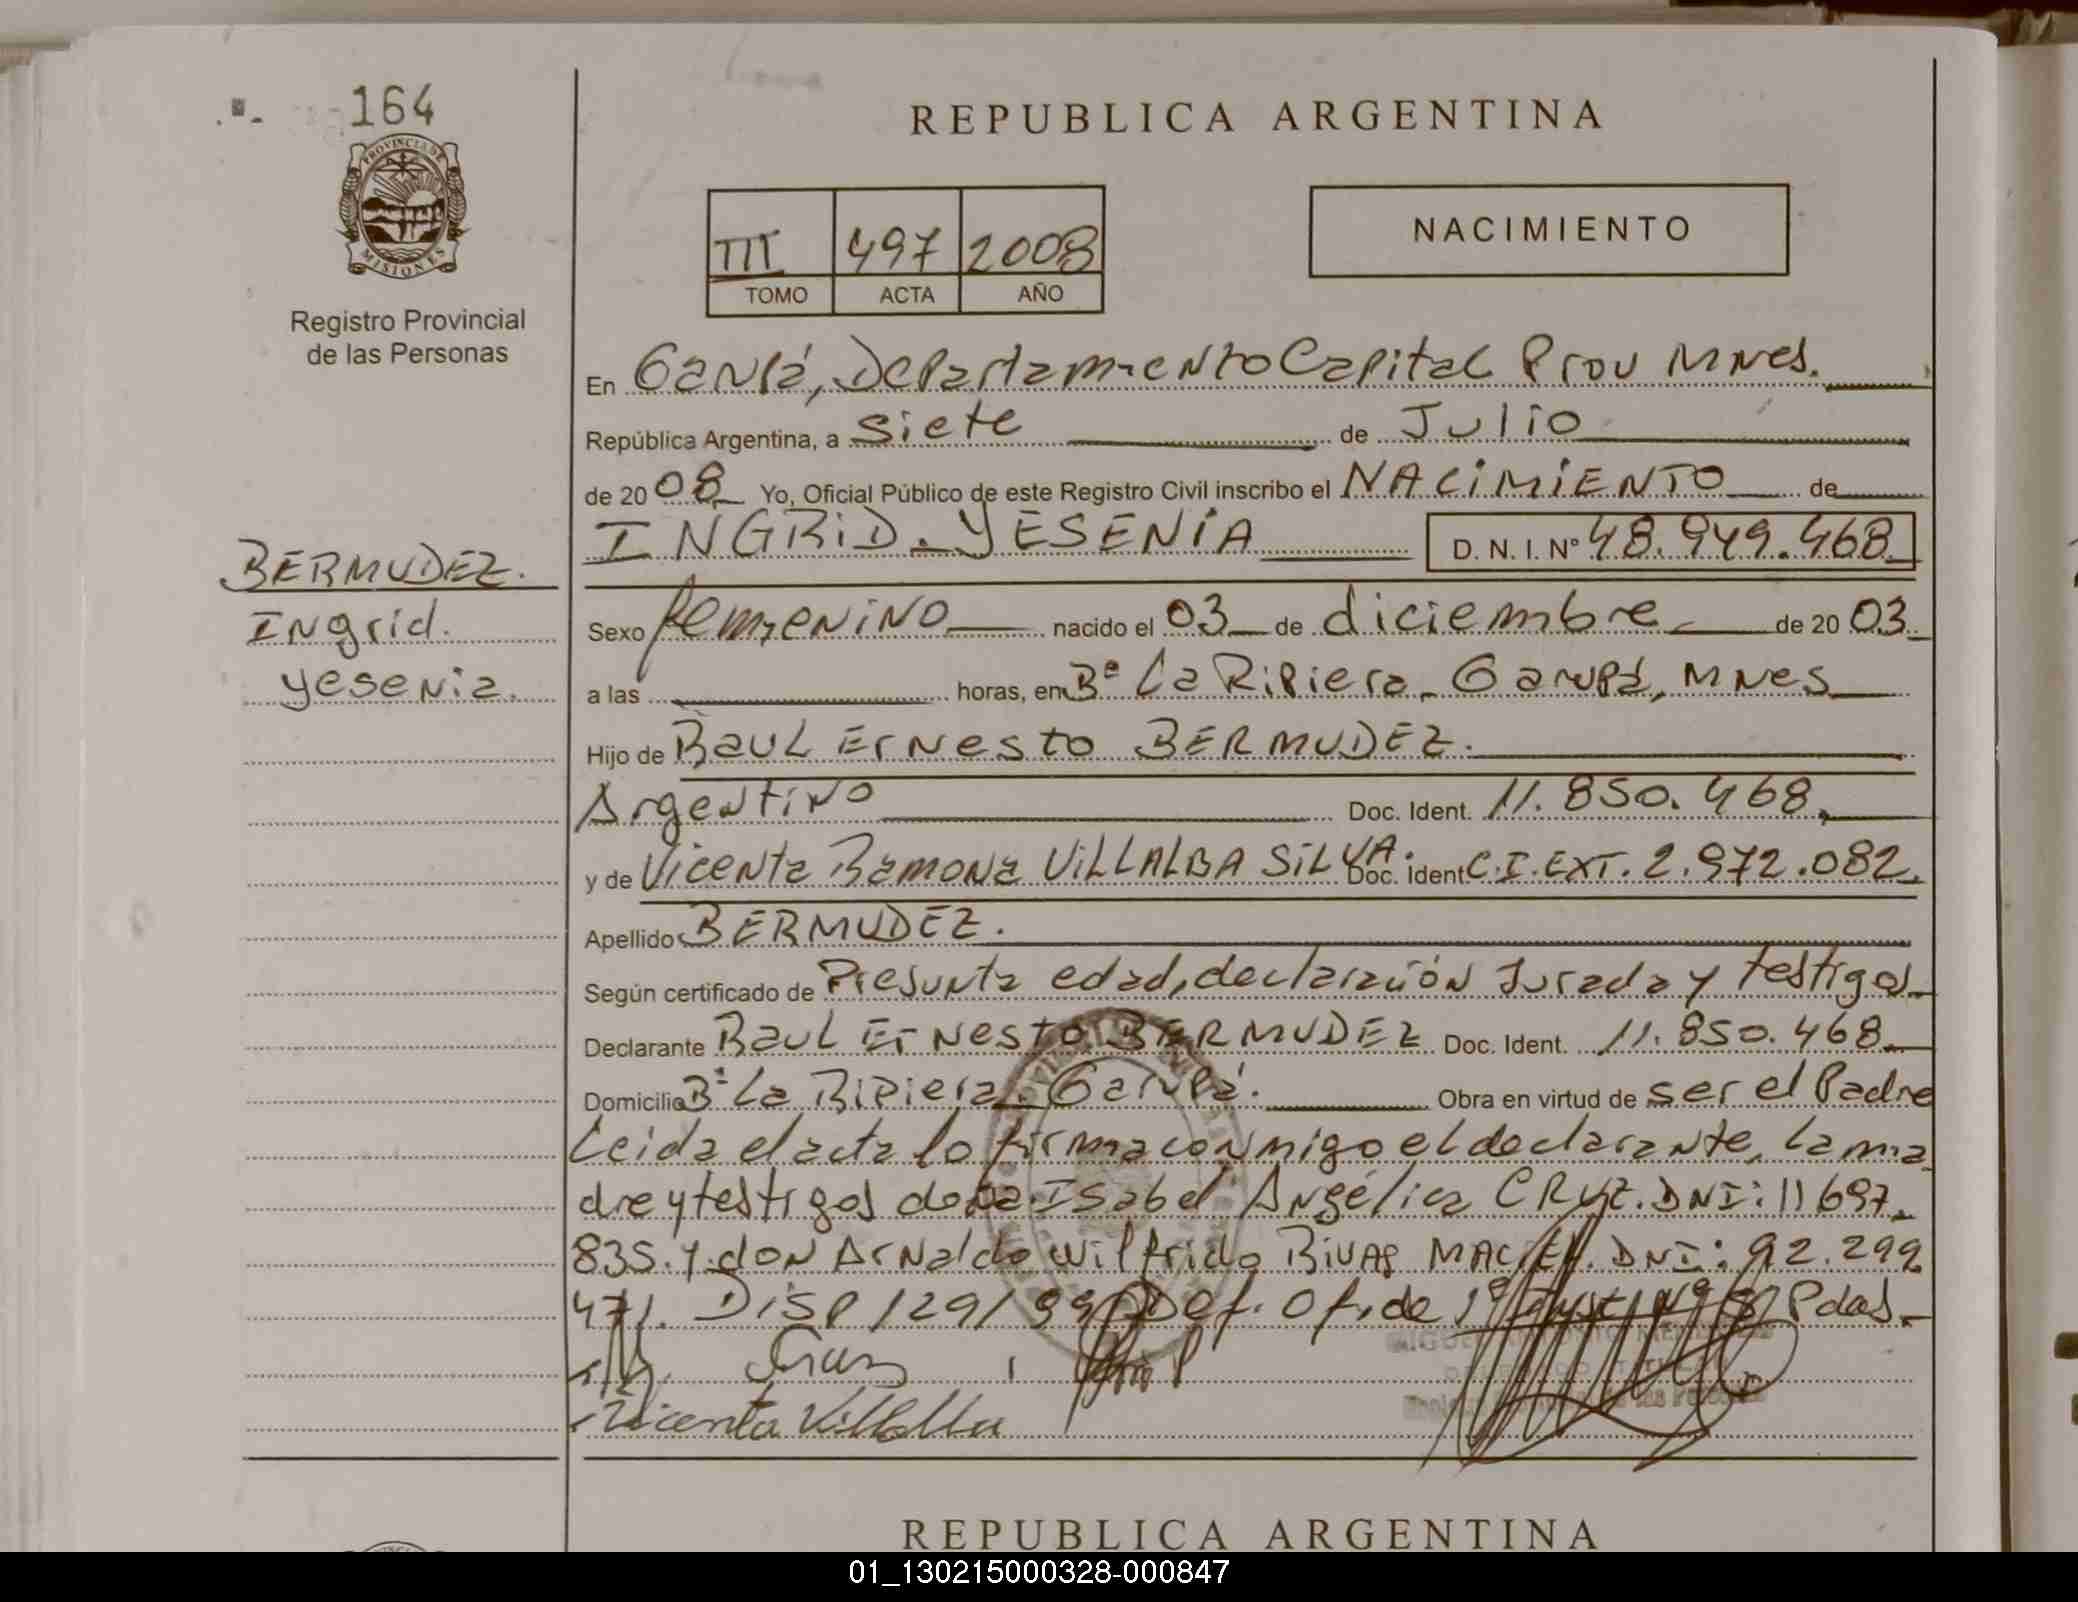 164
PROVINCIA DE
MISIONES
Registro Provincial
de las Personas
BERMUDEZ.
Ingrid.
Yesenia.
REPUBLICA ARGENTINA
III 497 2008
TOMO ACTA AÑO
NACIMIENTO
En Garupá, Departamento Capital Prov Mnes.
República Argentina, a siete de Julio
de 20 08 Yo, Oficial Público de este Registro Civil inscribo el NACIMIENTO de
INGRID YESENIA D. N. I. Nº 48.949.468
Sexo femenino nacido el 03 de diciembre de 20 03
a las horas, en Bº La Ribiera, Garupá, Mnes
Hijo de Raul Ernesto BERMUDEZ.
Argentino Doc. Ident. 11.850.468.
y de Vicenta Ramona VILLALBA SILVA. Doc. Ident C.I.EXT. 2.972.082.
Apellido BERMUDEZ.
Según certificado de Presunta edad, declaración Jurada y testigos
Declarante Raul Ernesto BERMUDEZ Doc. Ident. 11.850.468
Domicilio Bº La Ribiera, Garupá. Obra en virtud de ser el Padre
Leida el acta lo firma conmigo el declarante, la ma
dre y testigos doña Isabel Angélica CRUZ. DNI: 11 697
835. y don Arnaldo Wilfrido RIVAS MACIEL. DNI: 92.299
471. Disp 129/99 Def. Of. de 1º Inst Nº Pdas.
Cruz
Vicenta Villalba
REPUBLICA ARGENTINA
01_130215000328-000847